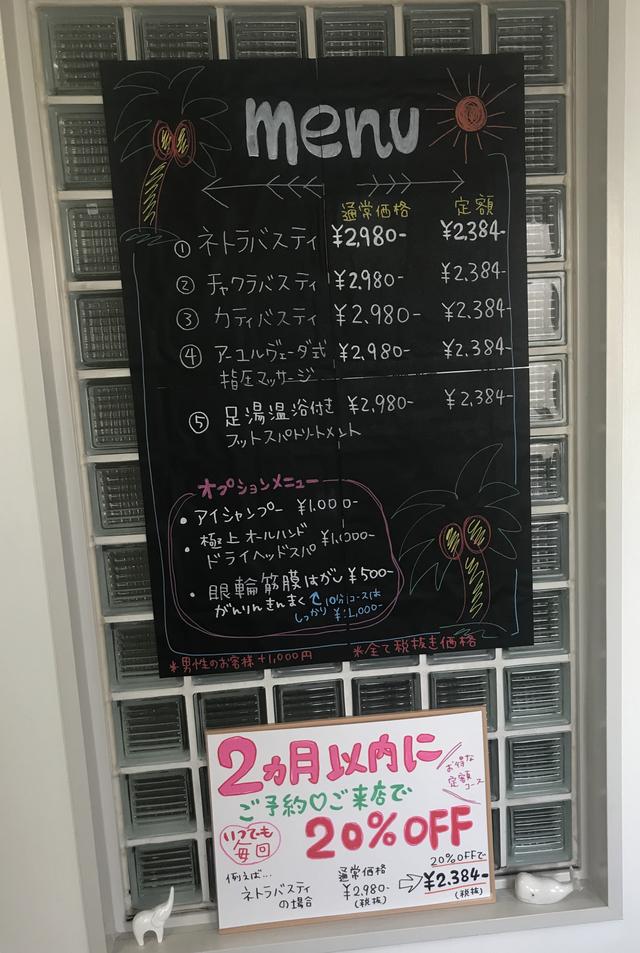 menu
通常価格 定額
① ネトラバスティ ¥2,980- ¥2,384-
② チャクラバスティ ¥2,980- ¥2,384-
③ カティバスティ ¥2,980- ¥2,384-
④ アーユルヴェーダ式 ¥2,980- ¥2,384-
指圧マッサージ
⑤ 足湯温浴付き ¥2,980- ¥2,384-
フットスパトリートメント
オプションメニュー
• アイシャンプー ¥1,000-
• 極上オールハンド ¥1,000-
ドライヘッドスパ
• 眼輪筋膜はがし ¥500-
がんりんきんまく 10分コースは
しっかり ¥1,000-
*男性のお客様+1,000円 *全て税抜き価格
2ヵ月以内に
ご予約♡ご来店で
お得な
定額
コース
いつでも
毎回
20%OFF
例えば…
ネトラバスティ
の場合
通常価格
¥2,980-
(税抜)
20%OFFで
¥2,384-
(税抜)